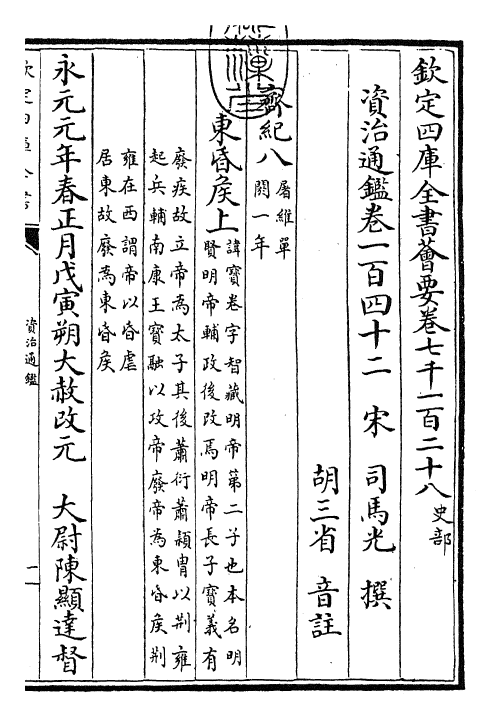 欽定四庫全書薈要卷七千一百二十八 史部
資治通鑑卷一百四十二 宋 司馬光 撰
胡三省 音註
齊紀八 屠維單
閼一年
東昏侯上 諱寶卷字智藏明帝第二子也本名明
賢明帝輔政後改焉明帝長子寶義有
廢疾故立帝為太子其後蕭衍蕭穎胄以荆雍
起兵輔南康王寶融以攻帝廢帝為東昏侯荆
雍在西謂帝以昏虐
居東故廢為東昏侯
永元元年春正月戊寅朔大赦改元 大尉陳顯達督
欽定四庫全書
資治通鑑
一